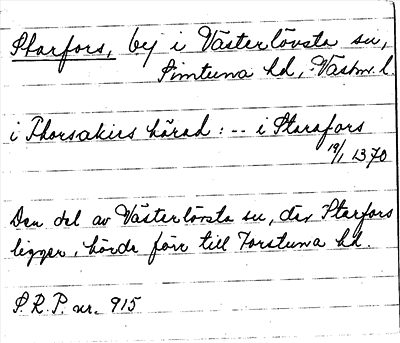 Starfors, by i Västerlövsta sn,
Simtuna hd, Västm. l.
i Thorsakirs härad: -- i Starafors
19/1 1370
Den del av Västerlövsta sn, där Starfors
ligger, hörde förr till Torstuna hd.
S.R.P. nr. 915